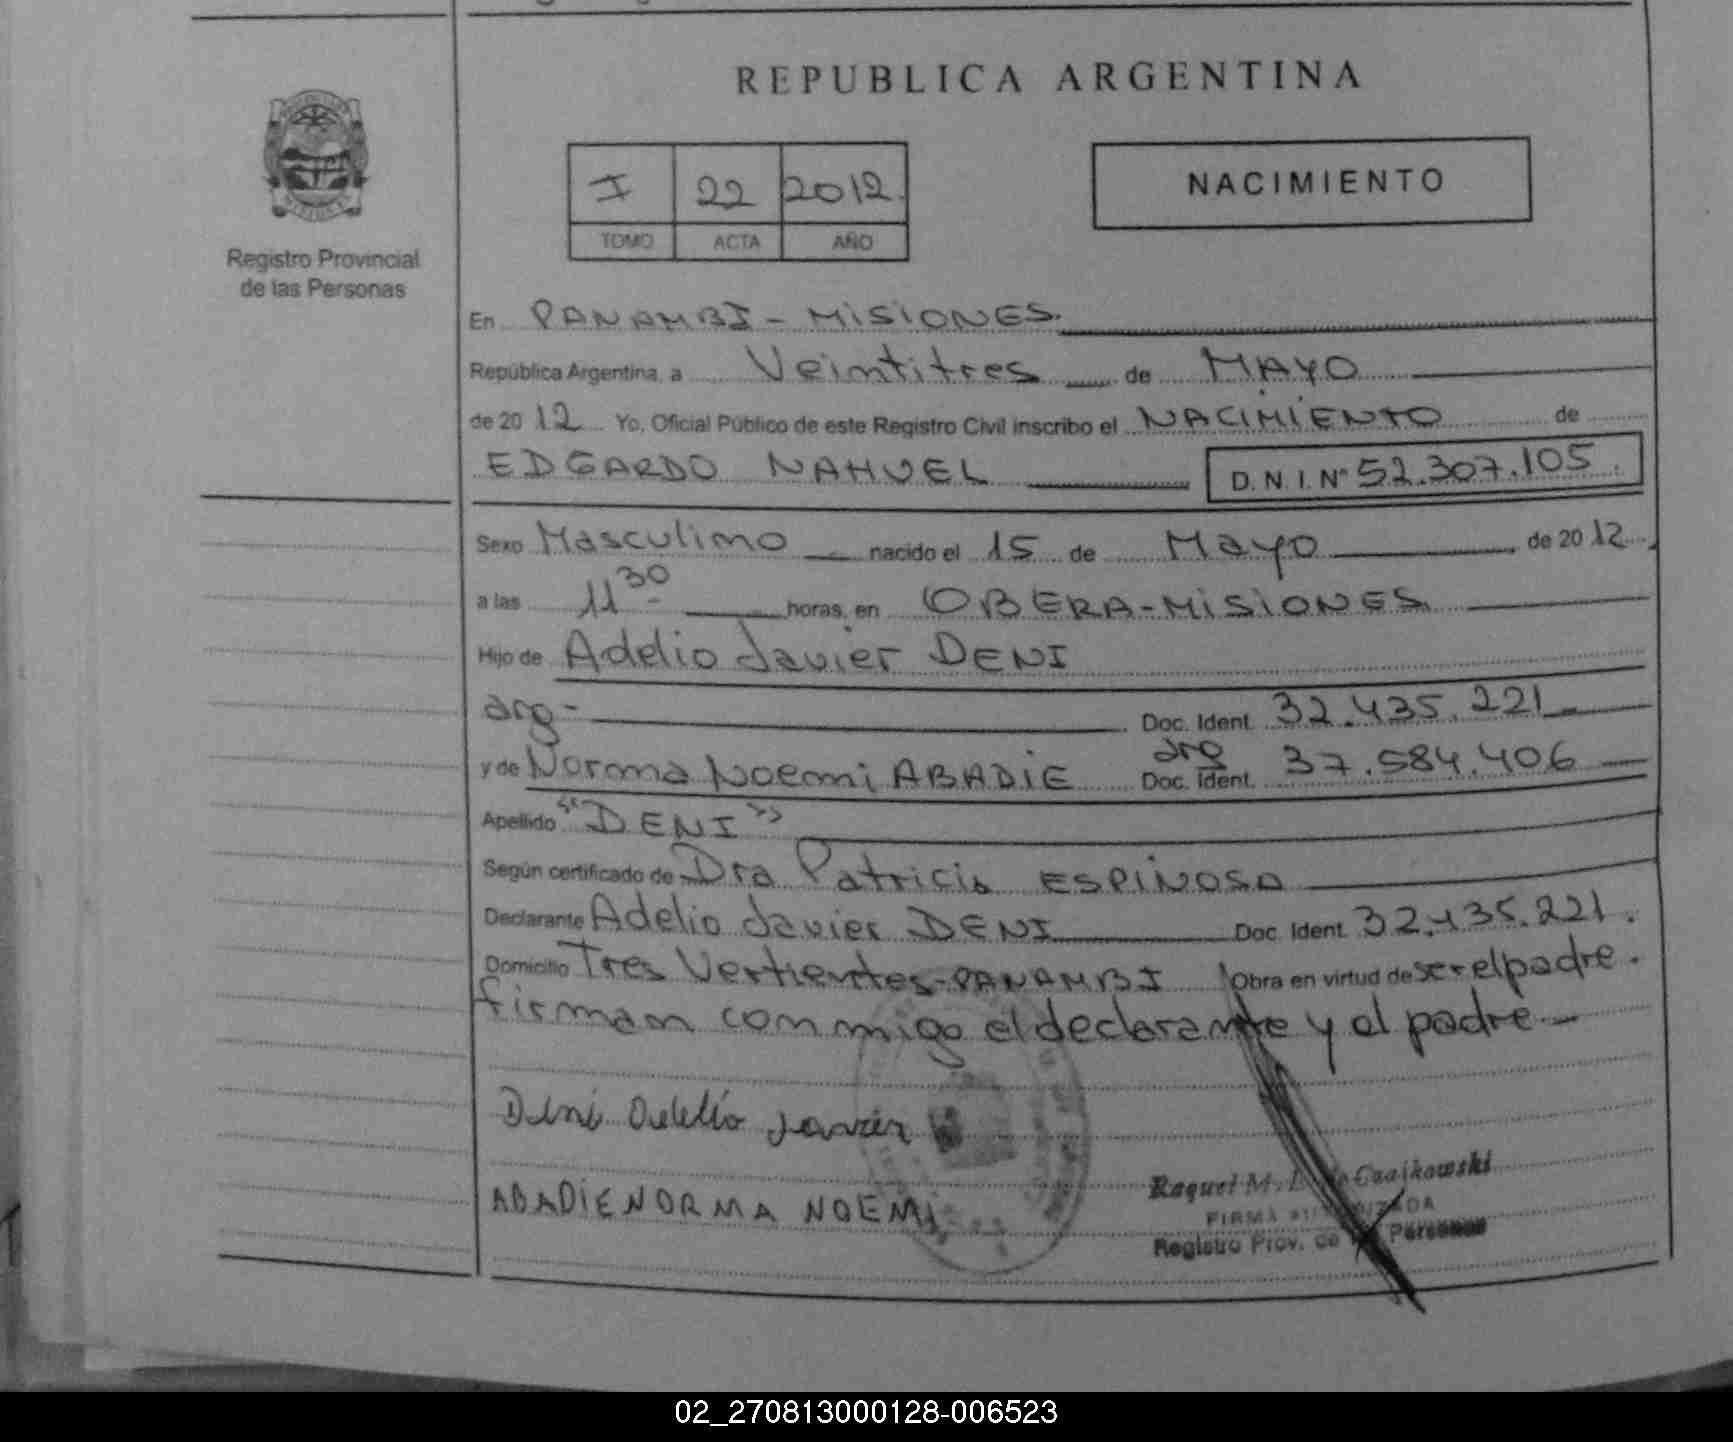 REPUBLICA ARGENTINA
I 22 2012
TOMO ACTA AÑO
NACIMIENTO
Registro Provincial
de las Personas
En PANAMBI - MISIONES.
República Argentina, a Veintitres de MAYO
de 2012 Yo, Oficial Público de este Registro Civil inscribo el NACIMIENTO de
EDGARDO NAHUEL D.N.I. Nº 52.307.105.
Sexo Masculino nacido el 15 de Mayo de 2012
a las 11 30 horas, en OBERA-MISIONES
Hijo de Adelio Javier DENI
arg- Doc. Ident. 32.435.221
y de Norma Noemi ABADIE arg Doc. Ident. 37.584.406
Apellido "DENI"
Según certificado de Dra Patricia ESPINOSA
Declarante Adelio Javier DENI Doc. Ident. 32.435.221.
Domicilio Tres Vertientes-PANAMBI Obra en virtud de ser el padre.
firman conmigo el declarante y el padre
Deni Adelio Javier
ABADIE NORMA NOEMI
Raquel M. Czajkowski
FIRMA AUTORIZADA
Registro Prov. de Personas
02_270813000128-006523